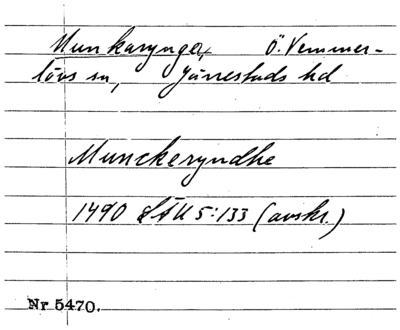 Munkarynger, Ö. Vemmer-
lövs sn, Järrestads hd
Munckeryndhe
1490 LÄU 5:133 (avskr.)
Nr 5470.